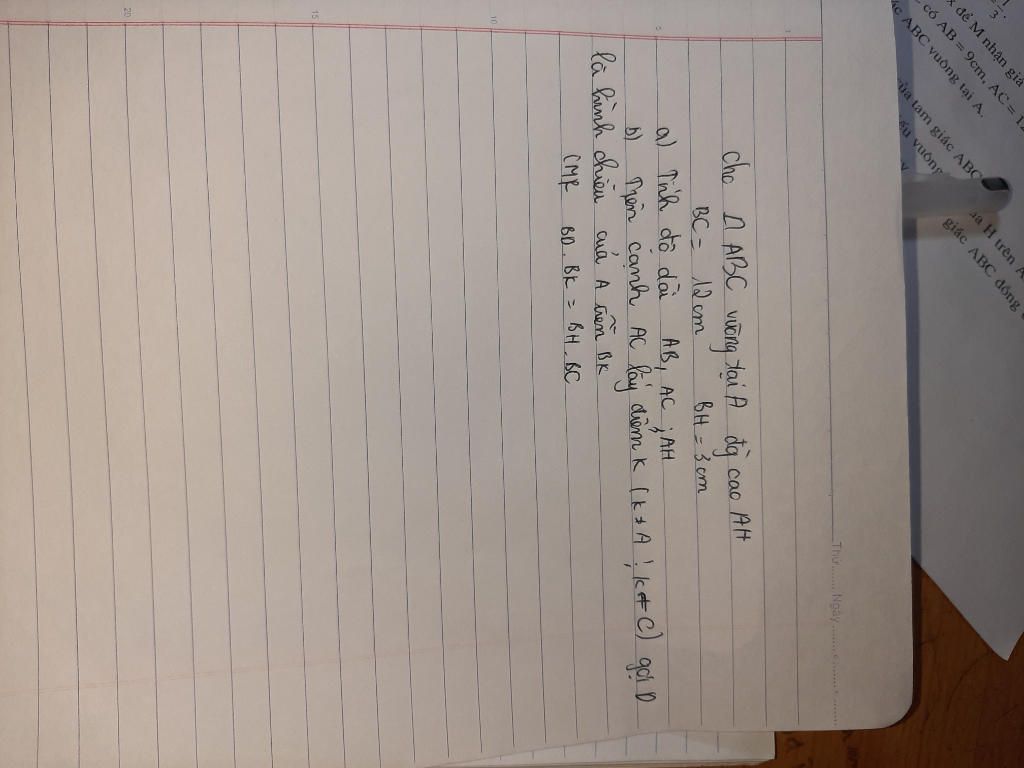 Cho Δ ABC vuông tại A đg cao AH
BC = 12cm BH = 3cm
a) Tính độ dài AB, AC, AH
b) Trên cạnh AC lấy điểm K (K ≠ A ; K ≠ C) gọi D
là hình chiếu của A trên BK
CMR BD. BK = BH. BC
Thứ Ngày
1
5
10
15
20
3.
x để M nhận giá
có AB = 9cm, AC = 12
ABC vuông tại A.
của tam giác ABC
H trên A
giác ABC đồng